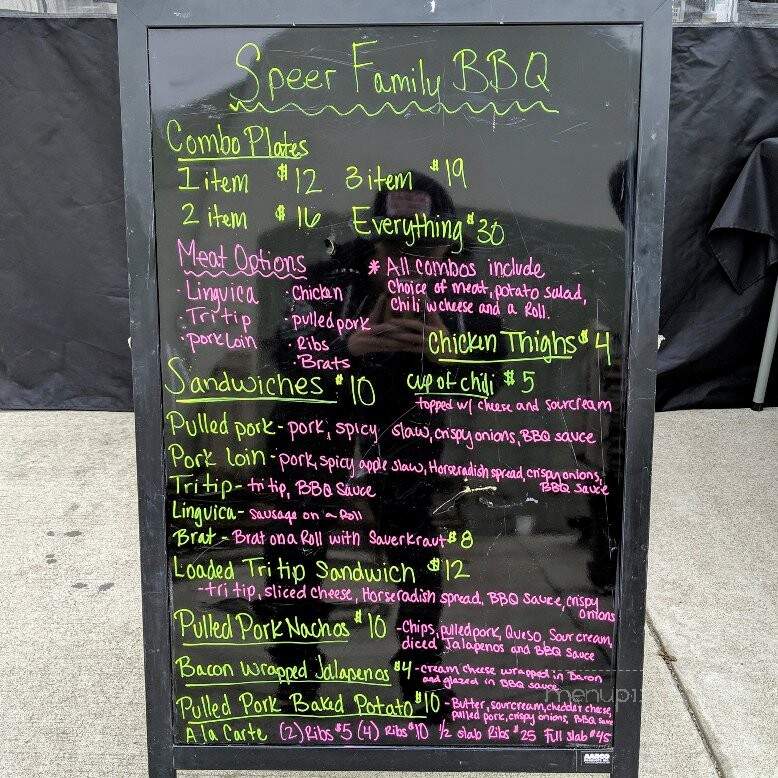 Speer Family BBQ
Combo Plates
1 item $12 3 item $19
2 item $16 Everything $30
Meat Options
* All combos include
choice of meat, potato salad,
chili w cheese and a Roll.
· Linguica · Chicken
· Tri tip · pulled pork
· pork loin · Ribs
· Brats
Chicken Thighs $4
Sandwiches $10 cup of chili $5
topped w/ cheese and sourcream
Pulled pork - pork, spicy slaw, crispy onions, BBQ sauce
Pork loin - pork, spicy apple slaw, Horseradish spread, crispy onions,
BBQ sauce
Tri tip - tri tip, BBQ Sauce
Linguica - Sausage on a Roll
Brat - Brat on a Roll with Sauerkraut $8
Loaded Tri tip Sandwich $12
- tri tip, sliced cheese, Horseradish spread, BBQ Sauce, crispy
onions
Pulled Pork Nachos $10 - Chips, pulled pork, Queso, Sour cream,
diced Jalapenos and BBQ Sauce
Bacon Wrapped Jalapenos $4 - cream cheese wrapped in Bacon
and glazed in BBQ sauce
Pulled Pork Baked Potato $10 - Butter, sourcream, cheddar cheese,
pulled pork, crispy onions, BBQ sauce
A la Carte (2) Ribs $5 (4) Ribs $10 1/2 slab Ribs $25 Full slab $45
menupix